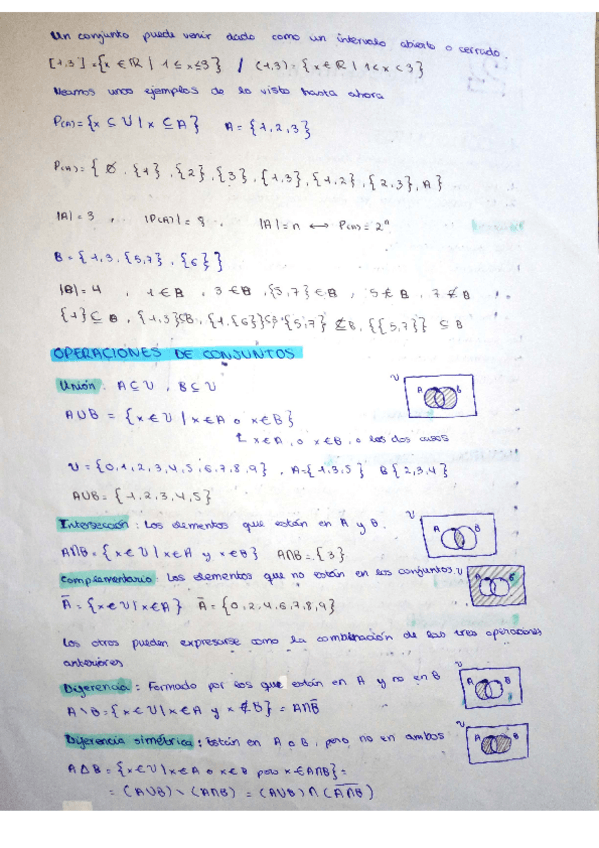 Un conjunto puede venir dado como un intervalo abierto o cerrado
[1,3] = {x ∈ ℝ | 1 ≤ x ≤ 3} / (1,3) = {x ∈ ℝ | 1 < x < 3}
Veamos unos ejemplos de lo visto hasta ahora
P(A) = {x ⊆ U | x ⊆ A} A = {1,2,3}
P(A) = {Ø, {1}, {2}, {3}, {1,3}, {1,2}, {2,3}, A}
|A| = 3 , |P(A)| = 8 , |A| = n ⟷ P(A) = 2ⁿ
B = {1,3,{5,7},{6}}
|B| = 4 , 1 ∈ B , 3 ∈ B , {5,7} ∈ B , 5 ∉ B , 7 ∉ B
{1} ⊆ B , {1,3} ⊆ B , {1,{6}} ⊆ B {5,7} ⊄ B, {{5,7}} ⊆ B
OPERACIONES DE CONJUNTOS
Unión: A ⊆ U , B ⊆ U
U A B
A∪B = {x ∈ U | x ∈ A o x ∈ B}
x ∈ A, o x ∈ B, o los dos casos
U = {0,1,2,3,4,5,6,7,8,9} , A={1,3,5} B{2,3,4}
A∪B = {1,2,3,4,5}
Intersección: Los elementos que están en A y B.
U A B
A∩B = {x ∈ U | x ∈ A y x ∈ B} A∩B = {3}
Complementario: Los elementos que no están en los conjuntos.
U A B
Ā = {x ∈ U | x ∈ A} Ā = {0,2,4,6,7,8,9}
Los otros pueden expresarse como la combinación de las tres operaciones
anteriores
Diferencia: Formado por los que están en A y no en B
U A B
A \ B = {x ∈ U | x ∈ A y x ∉ B} = A∩B̄
Diferencia simétrica: Están en A o B, pero no en ambos
U A B
A Δ B = {x ∈ U | x ∈ A o x ∈ B pero x ∈ A∩B} =
= (A∪B) \ (A∩B) = (A∪B) ∩ (A̅∩̅B̅)